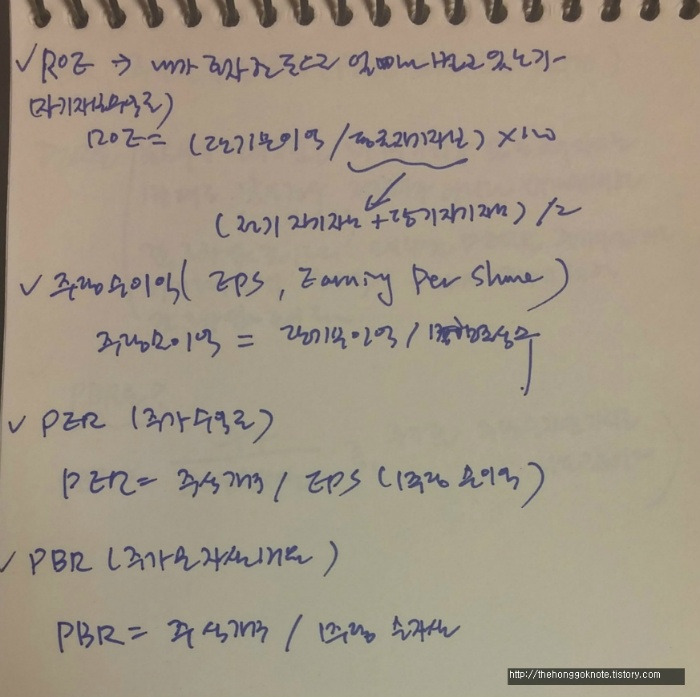 ✓ ROE → 내가 투자한 돈으로 얼마나 벌고 있는가
(자기자본수익률)
ROE = (당기순이익 / 평균자기자본) ×100
(전기 자기자본 + 당기자기자본) / 2
✓ 주당순이익 ( EPS, Earning Per Share )
주당순이익 = 당기순이익 /
✓ PER (주가수익률)
PER = 주식가격 / EPS (1주당 순이익)
✓ PBR (주가순자산비율)
PBR = 주식가격 / 1주당 순자산
http://thehonggoknote.tistory.com